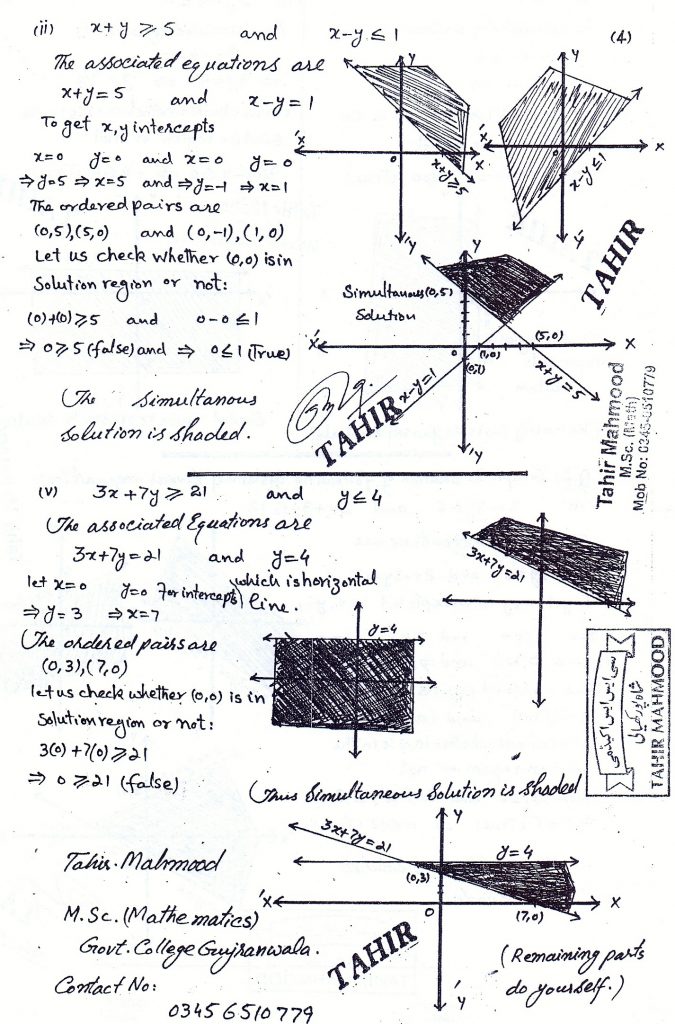 (ii) x+y ⩾ 5 and x-y ≤ 1 (4)
The associated equations are
x+y=5 and x-y=1
To get x,y intercepts
x=0 y=0 and x=0 y=0
⇒y=5 ⇒x=5 and ⇒y=-1 ⇒x=1
The ordered pairs are
(0,5),(5,0) and (0,-1),(1,0)
Let us check whether (0,0) is in
Solution region or not:
(0)+(0)⩾5 and 0-0≤1
⇒ 0⩾5 (false) and ⇒ 0≤1 (True)
The simultanous
solution is shaded.
y
'x
0
x+y⩾5
x
'y
y
'x
x
0
x-y≤1
'y
TAHIR
y
Simultanous (0,5)
Solution
'x
0
(1,0)
(5,0)
x
x-y=1
x+y=5
'y
TAHIR
Tahir Mahmood
M.Sc. (Math)
Mob No: 0345-6510779
(v) 3x+7y ⩾ 21 and y≤4
The associated Equations are
3x+7y=21 and y=4
let x=0 y=0 (for intercepts) which is horizontal
⇒ y=3 ⇒x=7 line.
The ordered pairs are
(0,3),(7,0)
let us check whether (0,0) is in
Solution region or not:
3(0)+7(0)⩾21
⇒ 0⩾21 (false)
3x+7y=21
y=4
سی ایس ایس اکیڈمی
TAHIR MAHMOOD
Thus Simultaneous Solution is Shaded
3x+7y=21
y
y=4
(0,3)
'x
0
(7,0)
x
'y
Tahir Mahmood
M.Sc.(Mathematics)
Govt. College Gujranwala.
Contact No:
0345 6510779
TAHIR
(Remaining parts
do yourself.)